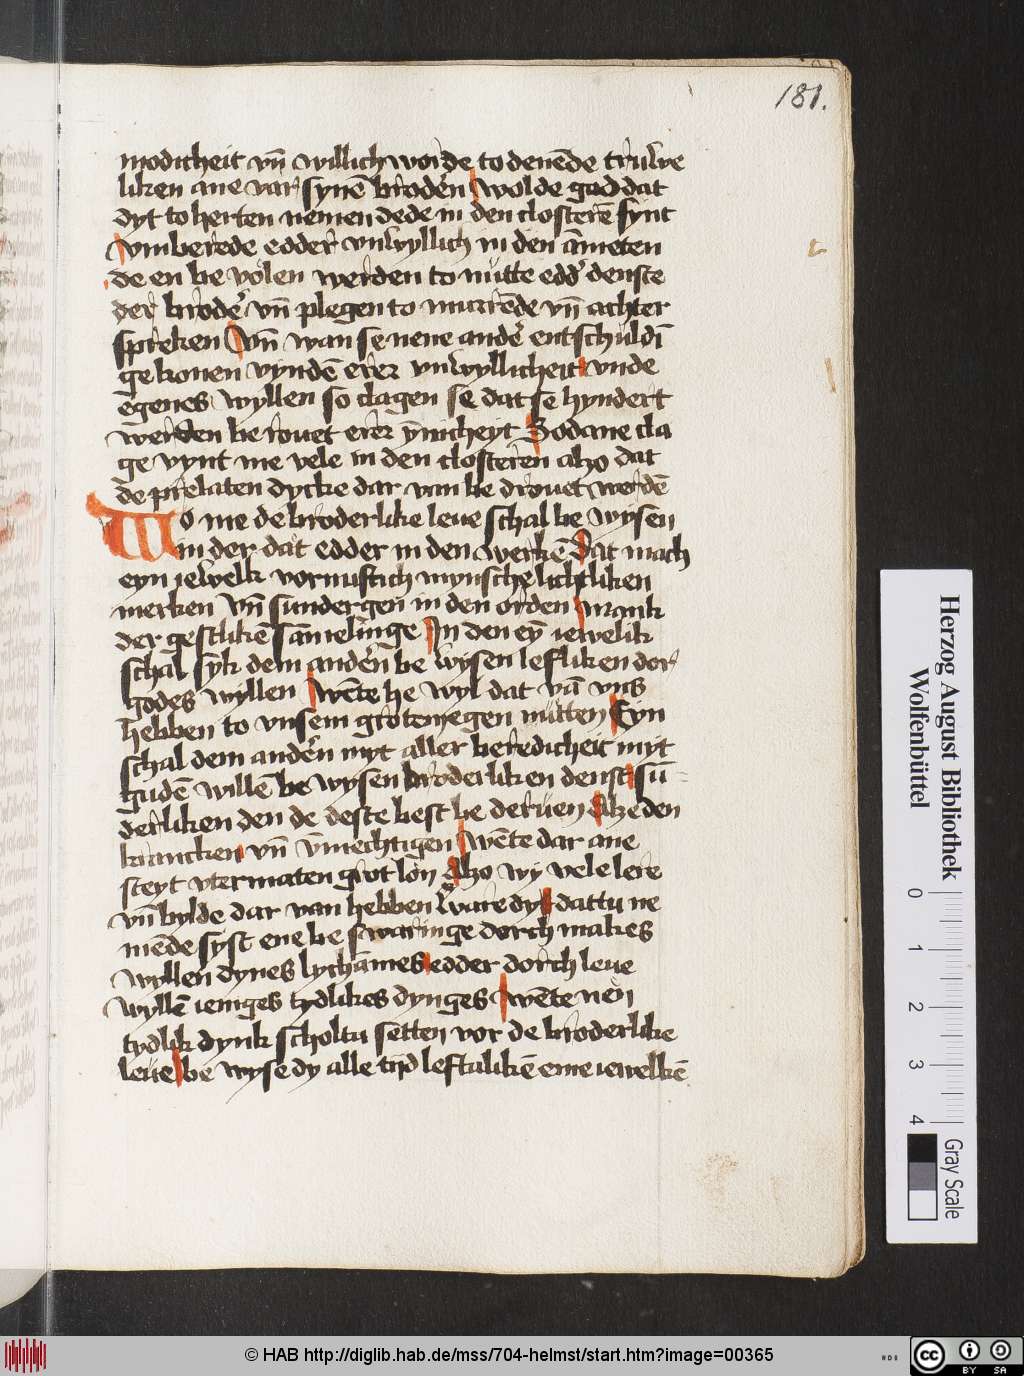 181.
modicheit vn̄ willich worde to denēde truwe
liken ane var synē broderˀn wolde god dat
dyt to herten nemen dede in den closterē synt
vmberede edder vnwyllich in den ām̄eten
de en be volen werden to nutte eddˀ denste
der brodeˀr vn̄ plegen to murrēde vn̄ achter
spreken Vn̄ wan se nene andeˀ entschuldī
ge konen vyndē erer vnwyllicheit vnde
egenes wyllen so clagen se dat se hyndert
werden be rouet erer ȳnicheyt Sodane cla
ge vynt me vele in den closteren alzo dat
de prelaten dycke dar van be drouet werdē
Wo me de broderlike leue schal be wysen
in der dat edder in den werkē Dat mach
eyn iewelk vornuftich mynsche lichtliken
merken vn̄ sundergen in den orden mank
der gestlikē sāmelinge In den eȳ iewelik
schal syk dem anderˀn be wysen lefliken dor
godes wyllen wēte he wyl dat vā vns
hebben to vnsem groten egen nutten Eyn
schal dem anderˀn myt aller beredicheit myt
gudē willē be wysen broderliken denst sū-
derliken den de deste best be deruen Alze den
krancken vn̄ vmechtigen wēte dar ane
steyt vtermaten grot lon Alzo wy vele lere
vn̄ bylde dar van hebben ware dy dattu ne
mēde syst ene be swaringe dorch makes
wyllen dynes lychāmes edder dorch leue
wyllē ieniges tydlikes dynges wēte nen
tydlik dynk scholtu setten vor de broderlike
leue be wyse dy alle tijd leftalikē eme iewelkē
Herzog August Bibliothek
Wolfenbüttel
0 1 2 3 4
Gray Scale
© HAB http://diglib.hab.de/mss/704-helmst/start.htm?image=00365
cc BY SA